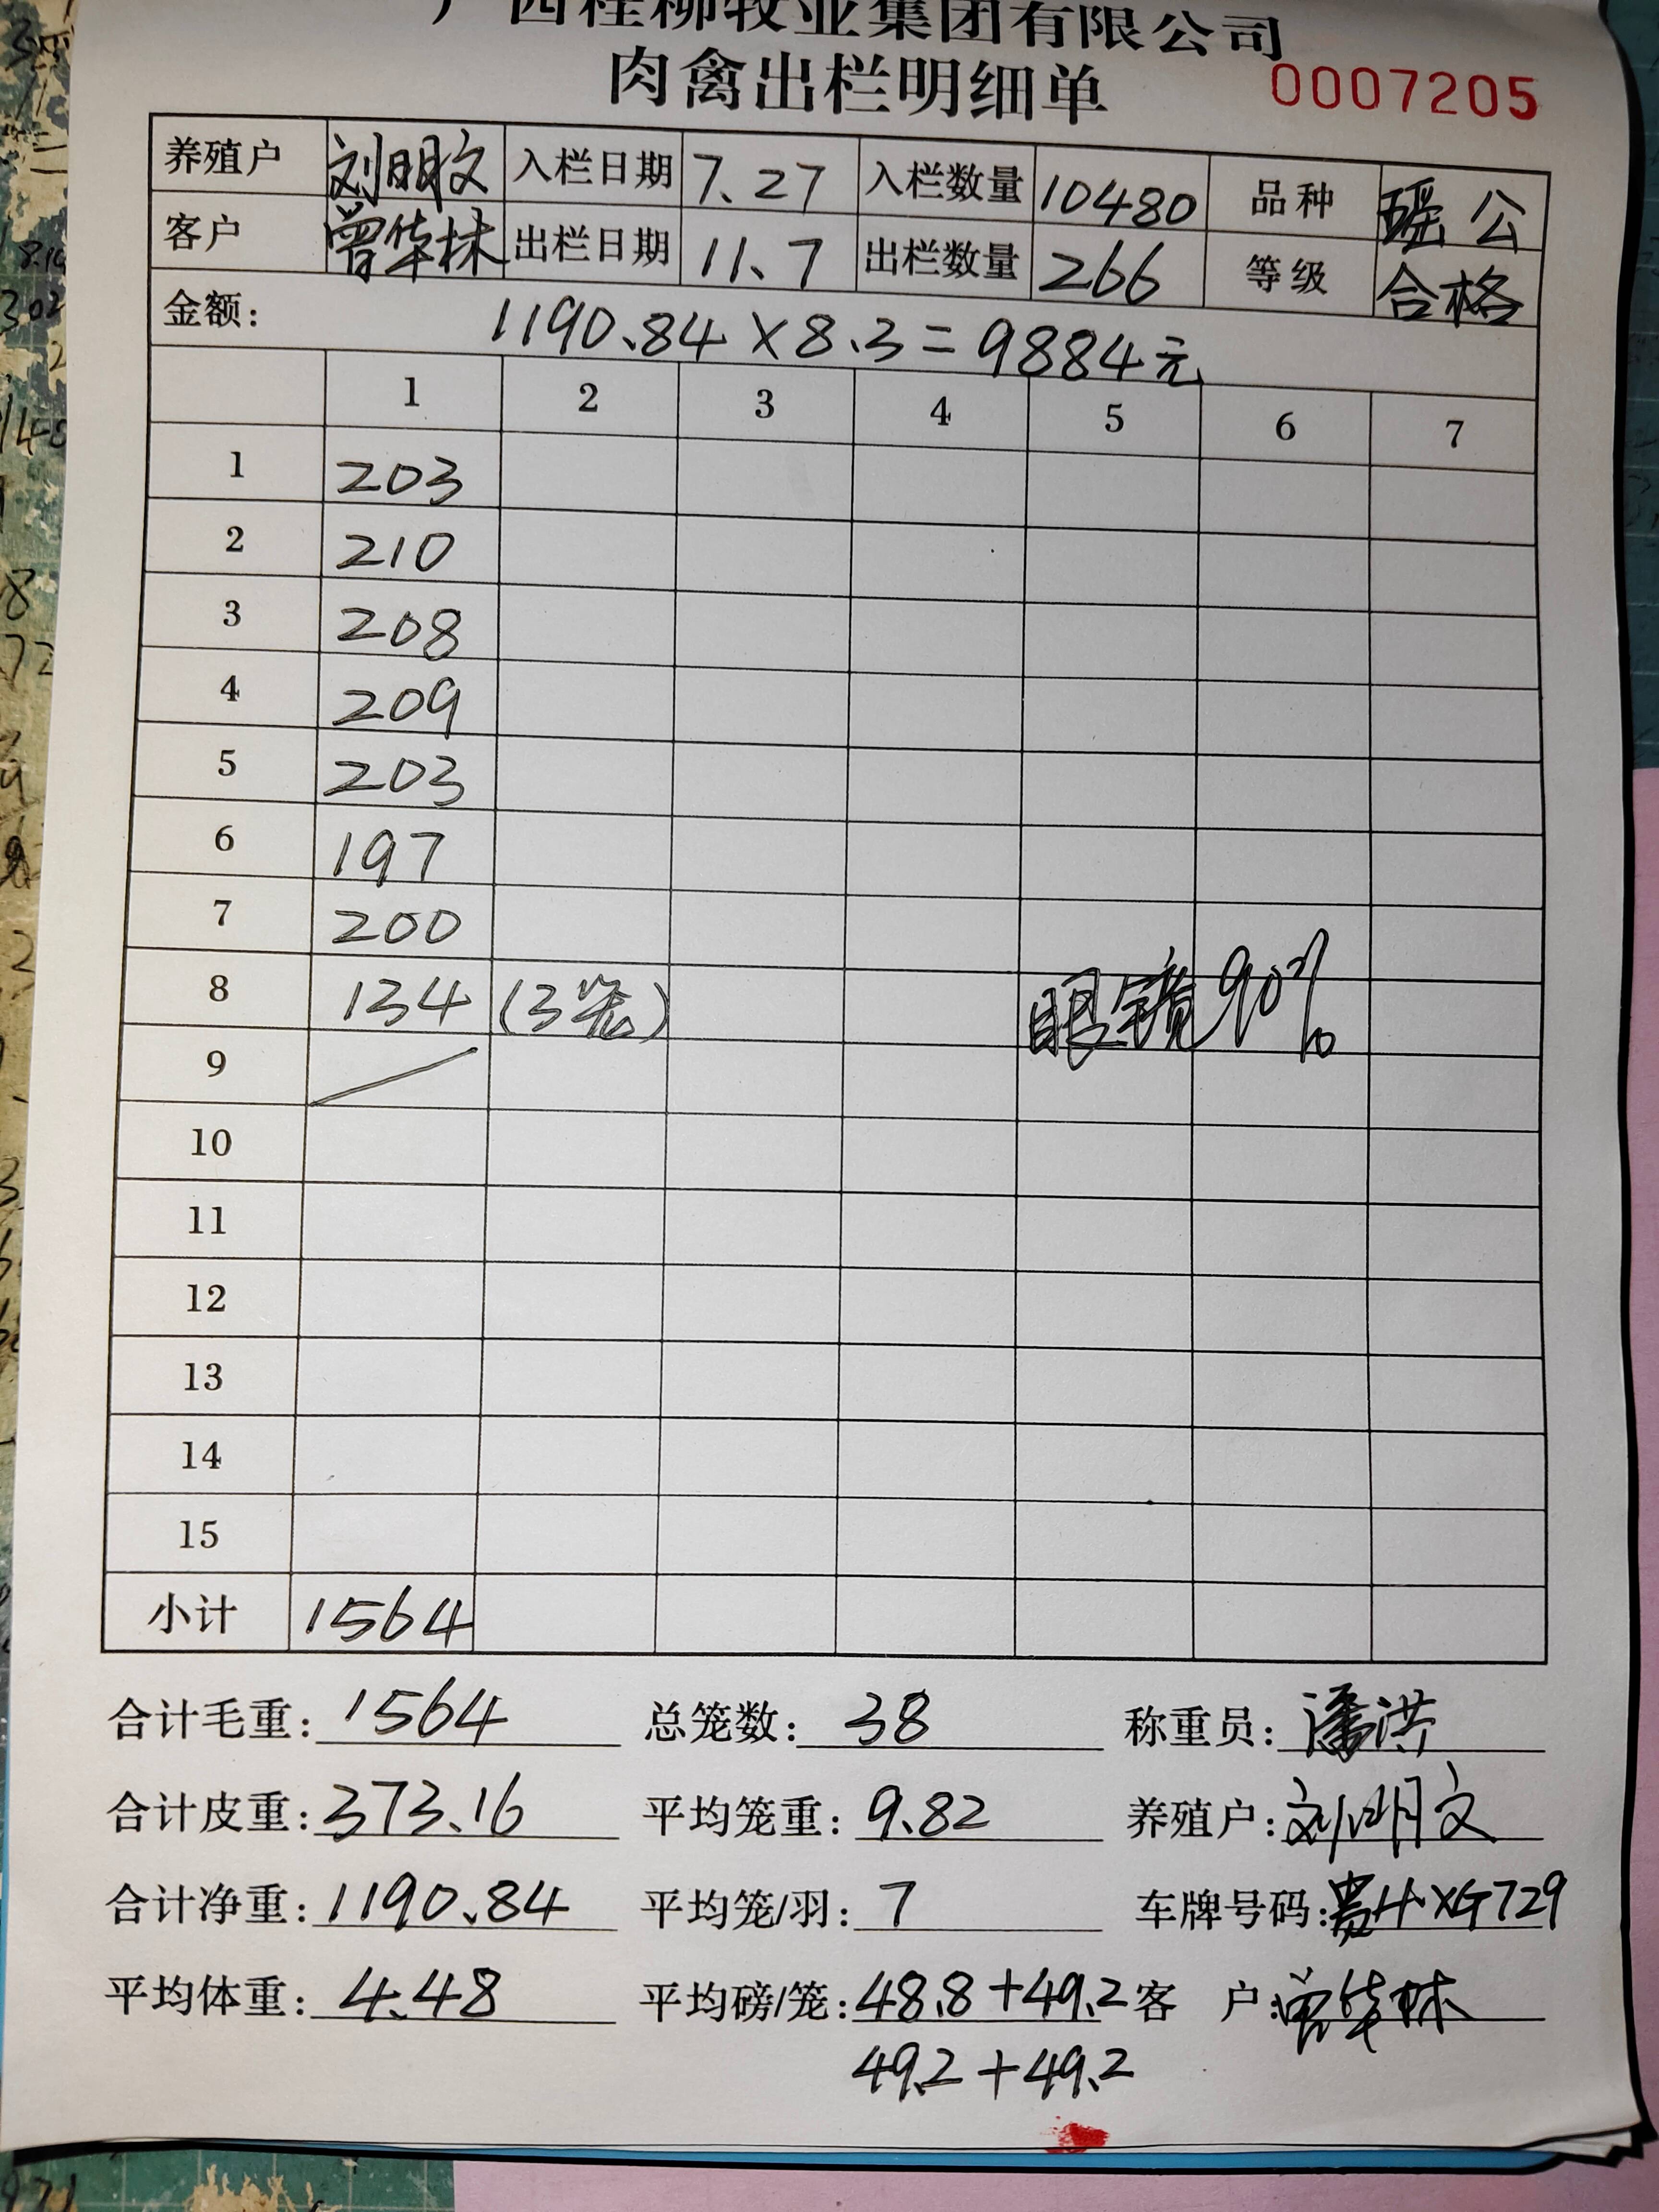 广西桂柳牧业集团有限公司
肉禽出栏明细单 0007205
养殖户 刘明文 入栏日期 7.27 入栏数量 10480 品种 瑶公
客户 曾华林 出栏日期 11.7 出栏数量 266 等级 合格
金额: 1190.84×8.3=9884元
1 2 3 4 5 6 7
1 203
2 210
3 208
4 209
5 203
6 197
7 200
8 134 (3笼) 眼镜90%
9
10
11
12
13
14
15
小计 1564
合计毛重: 1564 总笼数: 38 称重员: 潘洪
合计皮重: 373.16 平均笼重: 9.82 养殖户: 刘明文
合计净重: 1190.84 平均笼/羽: 7 车牌号码: XG729
平均体重: 4.48 平均磅/笼: 48.8+49.2 客 户: 曾华林
49.2+49.2